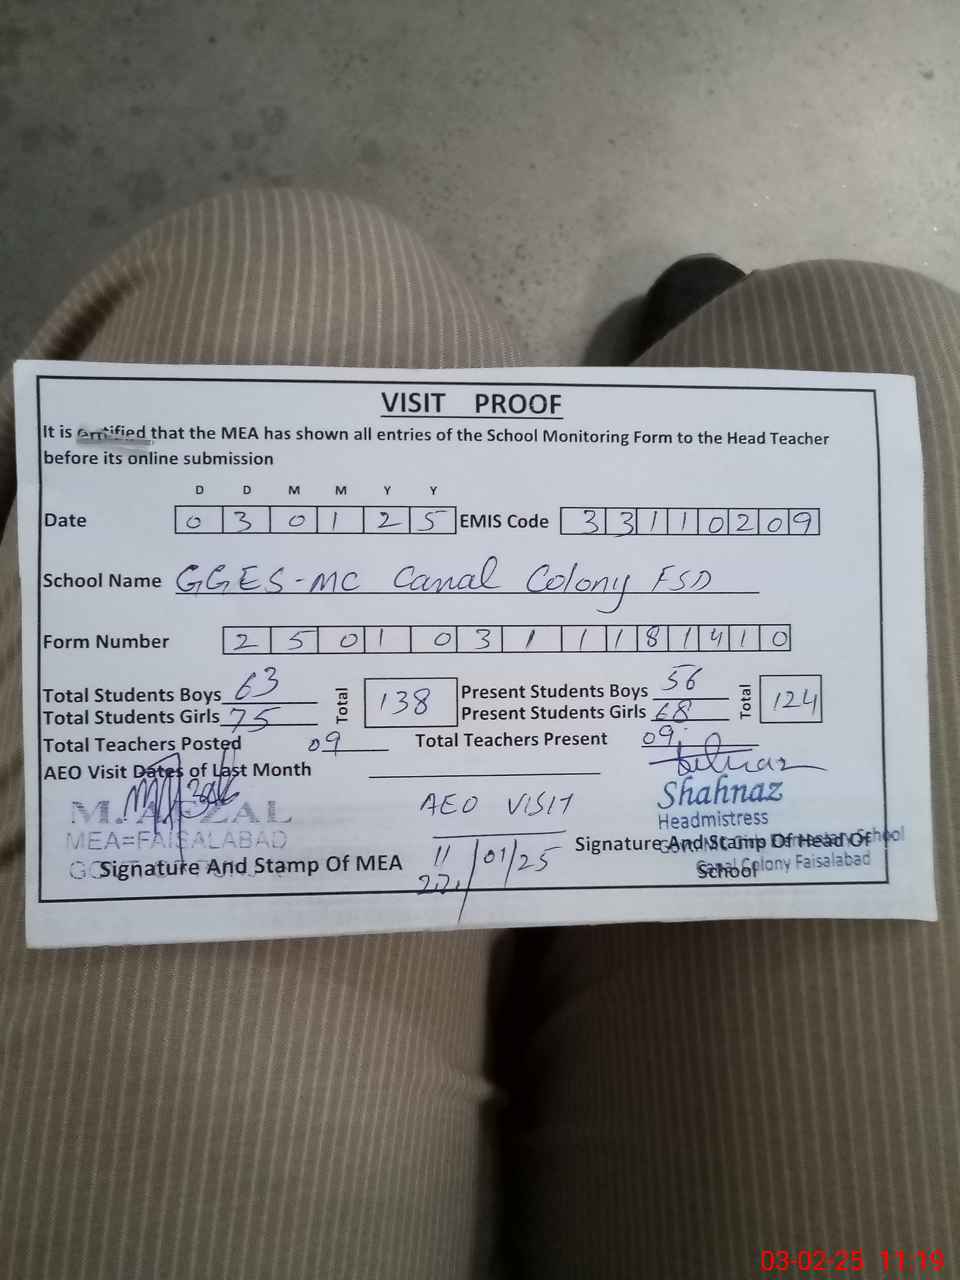 VISIT PROOF
It is certified that the MEA has shown all entries of the School Monitoring Form to the Head Teacher
before its online submission
D D M M Y Y
Date 0 3 0 1 2 5 EMIS Code 3 3 1 1 0 2 0 9
School Name GGES-MC Canal Colony FSD
Form Number 2 5 0 1 0 3 1 1 1 8 1 4 1 0
Total Students Boys 63 Total 138 Present Students Boys 56 Total 124
Total Students Girls 75 Present Students Girls 68
Total Teachers Posted 09 Total Teachers Present 09
AEO Visit Dates of Last Month
AEO VISIT
M. AFZAL
MEA=FAISALABAD
Shahnaz
Headmistress
Signature And Stamp Of MEA
11/01/25
Signature And Stamp Of Head Of
School
Canal Colony Faisalabad
03-02-25 11:19